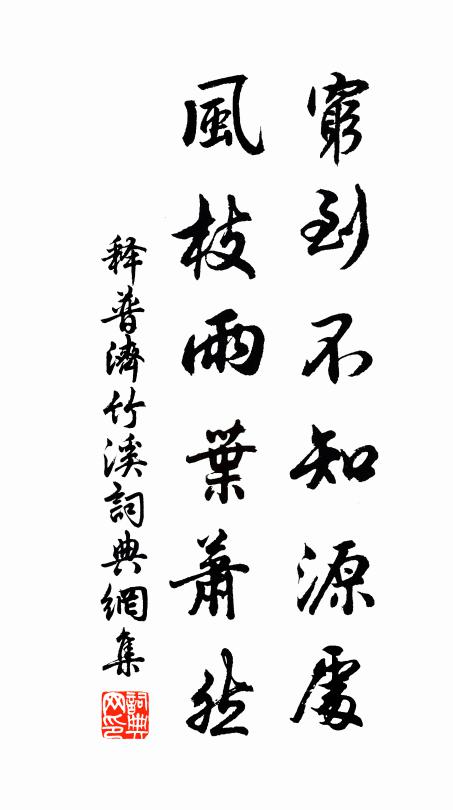 窮到不知源處
風枝雨葉蕭然
释普濟竹溪詞典網集
詞典網印